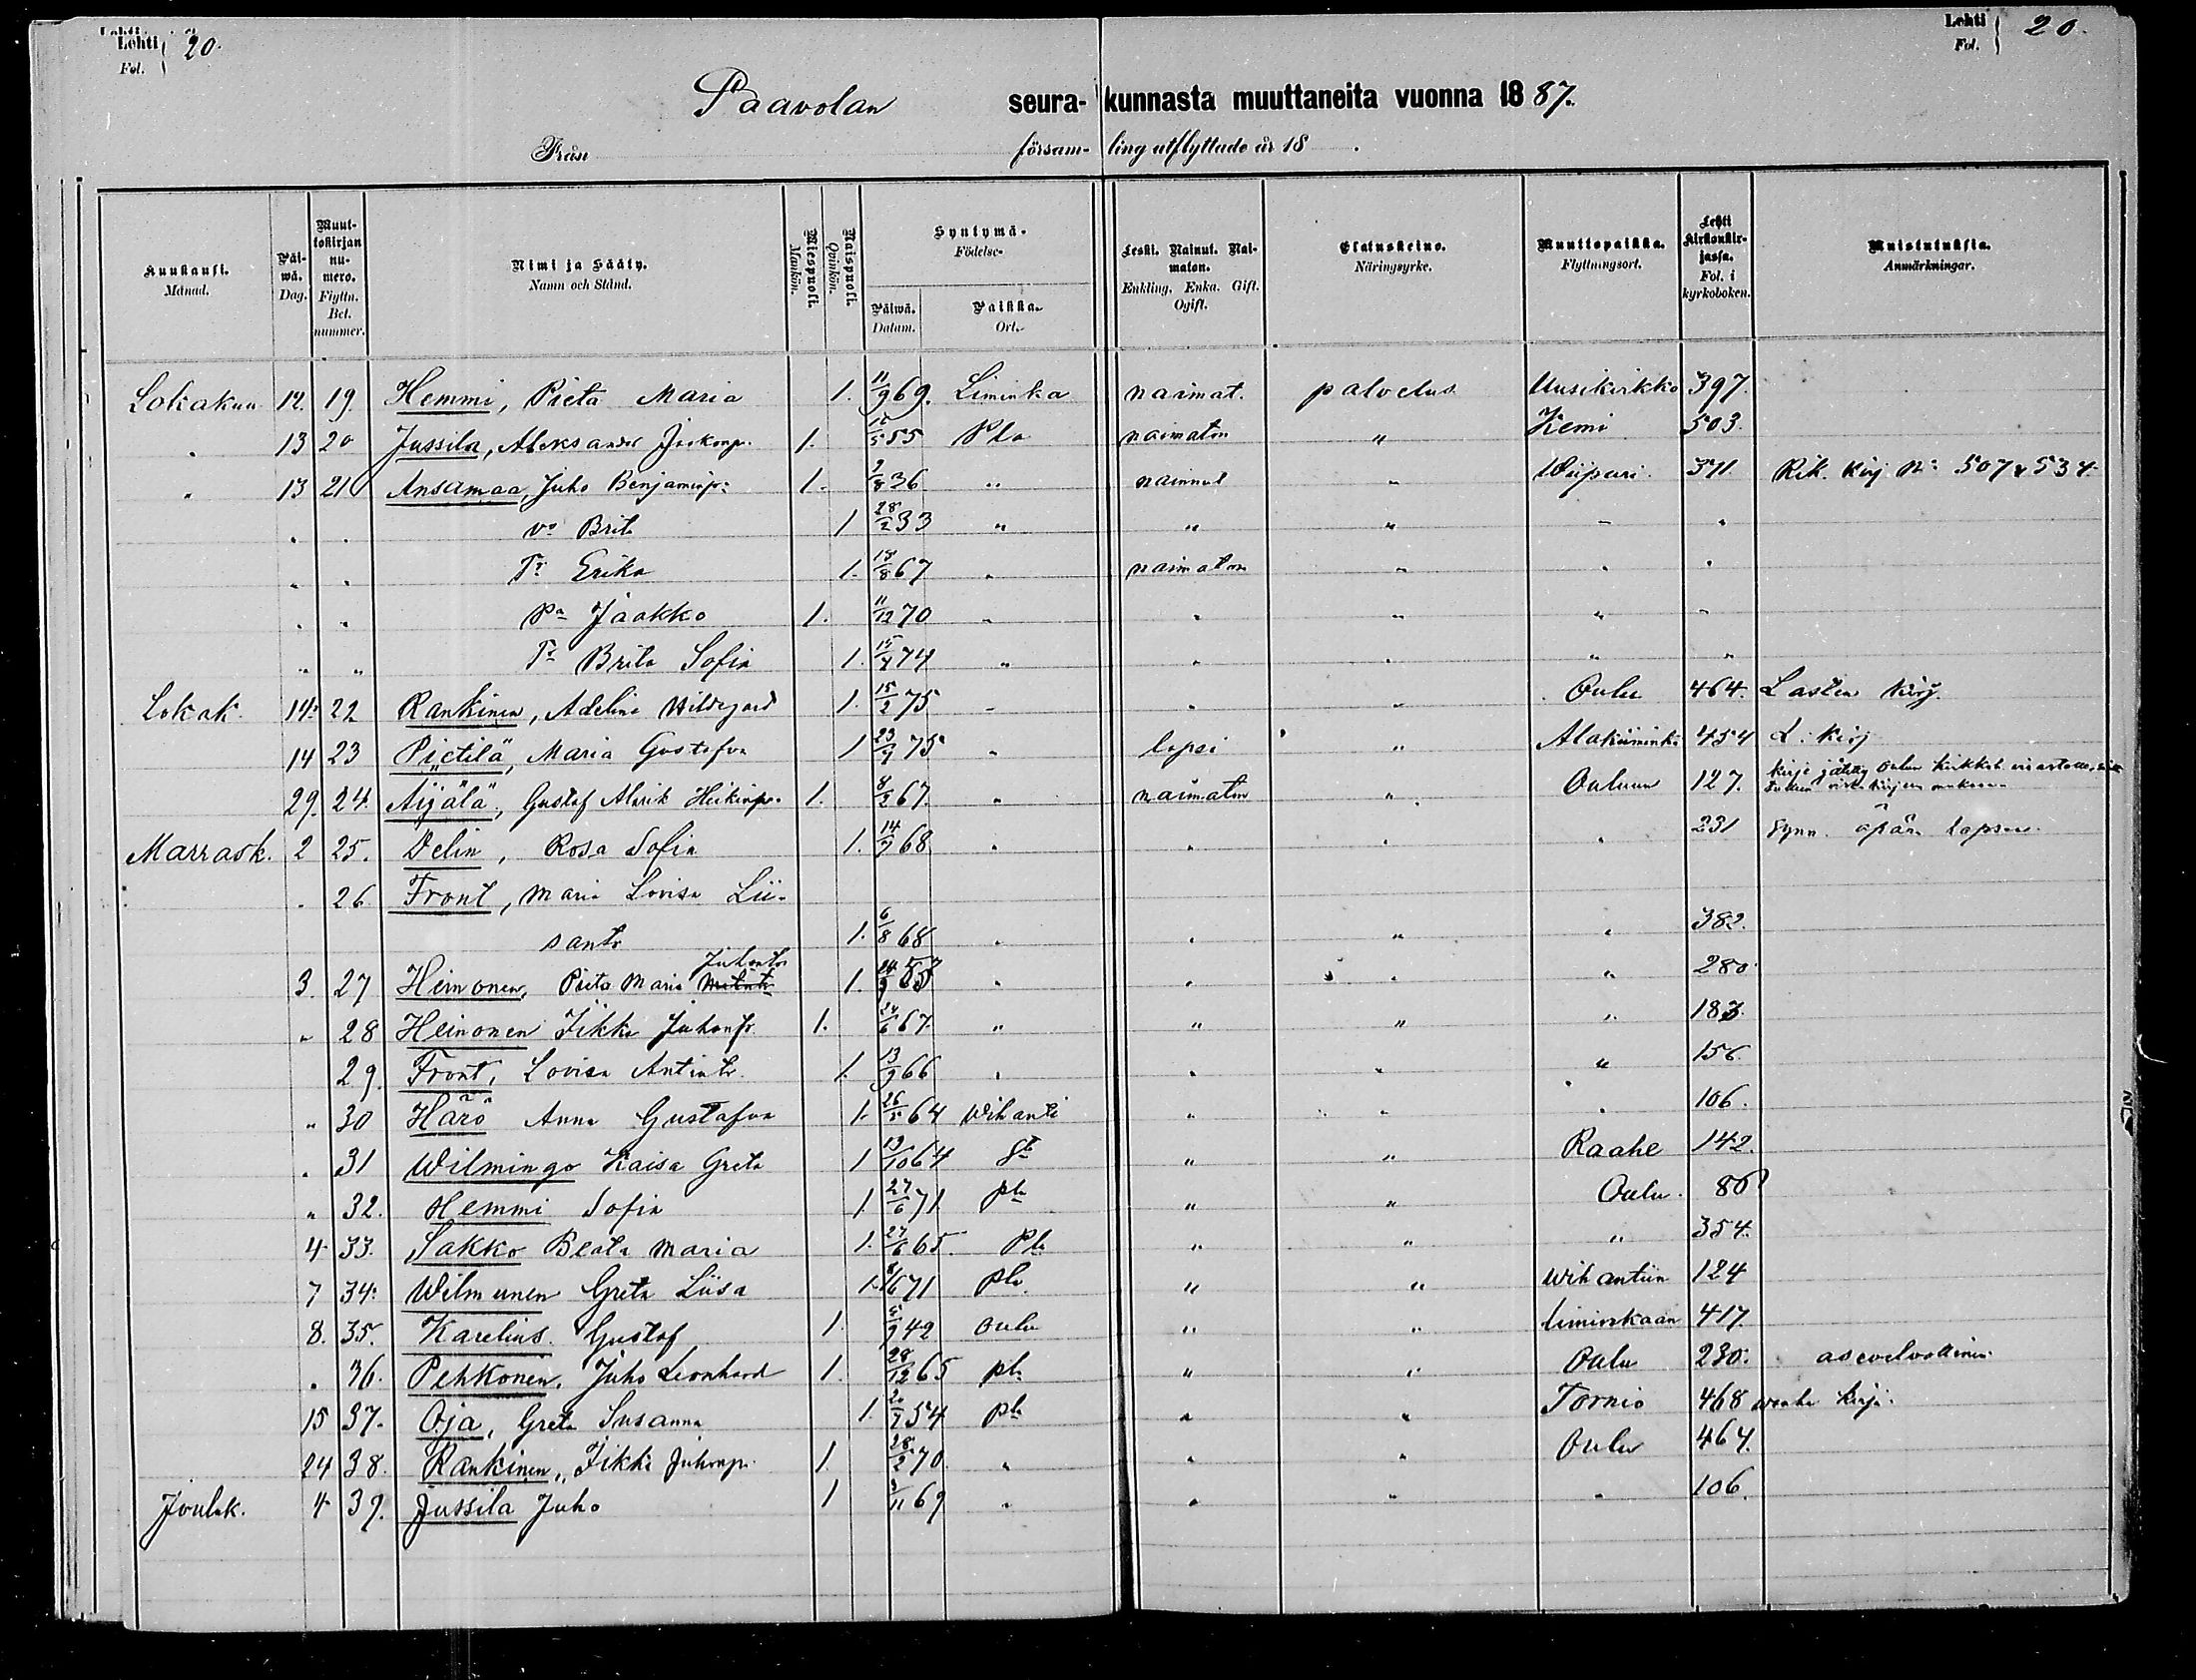 Lehti 20.
Fol.
Lehti 20.
Fol.
Paavolan seura- kunnasta muuttaneita vuonna 1887.
Från försam- ling utflyttade år 18 .
Kuukausi. Månad.
Päiwä. Dag.
Muuttokirjan numero. Flyttn. Bet. nummer.
Nimi ja Sääty. Namn och Stånd.
Miespuoli. Mankön.
Naispuoli. Qvinkön.
Syntymä- Födelse-
Päiwä. Datum.
Paikka. Ort.
Leski. Nainut. Naimaton. Enkling. Enka. Gift. Ogift.
Elatuskeino. Näringsyrke.
Muuttopaikka. Flyttningsort.
Lehti kirkonkirjassa. Fol. i kyrkoboken.
Muistutuksia. Anmärkningar.
Lokakuu 12. 19. Hemmi, Pieta Maria 1. 11/9 69. Liminka naimat. palvelus Uusikirkko 397.
" 13 20 Jussila, Aleksander Jaakonp. 1. 12/5 55 Pla naimaton " Kemi 503.
" 13 21 Ansamaa, Juho Benjaminp: 1. 9/8 36 " nainut " Wiipuri. 371. Rik. kirj N: 507 & 534.
" " vo Brita 1 28/2 33 " " " " "
" " Tr Erika 1. 18/8 67 " naimaton " " "
" " Pa Jaakko 1. 11/12 70 " " " " "
" " Tr Brita Sofia 1. 15/4 74 " " " " "
Lokak. 14. 22 Rankinen, Adelina Hildegard 1. 15/2 75 " " " Oulu 464. Lasten kirj.
14 23 Pietilä, Maria Gustafva 1 23/9 75 " lapsi " Alakiiminki 454 L: kirj
29. 24. Äijälä, Gustaf Alarik Heikinp. 1. 8/2 67. " naimaton " Ouluun 127. kirje jätetty Oulun kirkkoh.
Marrask. 2 25. Delin, Rosa Sofia 1. 14/9 68 " " " " 231 Synn. äpärä lapsen.
" 26 Front, Maria Lovisa Lii-
santr 1. 6/8 68 " " " " 382.
3. 27 Heinonen, Pieta Maria Juhontr 1. " " " " 280.
" 28 Heinonen Jikki Juhonp. 1. 24/6 67. " " " " 183.
29. Front, Lovisa Antintr. 1. 13/9 66 " " " " 156.
" 30 Härö Anna Gustafva 1. 26/5 64 Wihanti " " " 106.
" 31 Wilmingo Kaisa Greta 1 13/10 64 " " Raahe 142.
" 32. Hemmi Sofia 1. 27/6 71. Pla " " Oulu. 86
4 33. Sakko Beata Maria 1. 27/6 65. Pla " " " 354.
7 34. Wilmunen Greta Liisa 1. 8/6 71 Pla. " " Wihantiin 124
8. 35. Karelius. Gustaf 1. 5/9 42 Oulu " " Liminkaan 417.
" 36. Pehkonen, Juho Leonhard 1. 28/12 65 pla " " Oulu 230. asevelvollinen.
15 37. Oja, Greta Susanna 1. 20/7 54 pla " " Tornio 468 wanha kirja.
24 38. Rankinen, Jikki Juhonp. 1. 28/2 70 " " " Oulu 464.
Joulak. 4 39. Jussila Juho 1 3/11 69 " " " " 106.